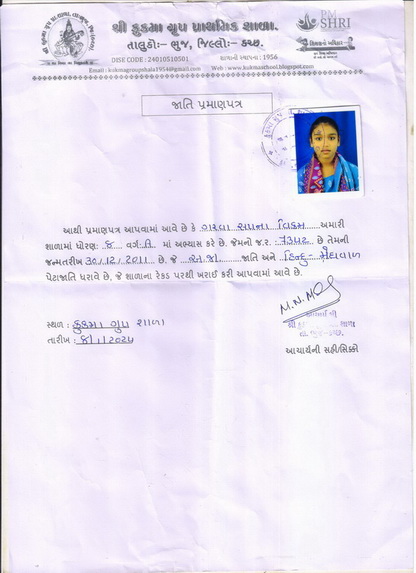 શ્રી કુકમા ગ્રુપ પ્રાથમિક શાળા.
તાલુકો:- ભુજ, જિલ્લો:- કચ્છ.
DISE CODE : 24010510501 શાળાની સ્થાપના : 1956
Email : kukmagrupshala1954@gmail.com Web : www.kukmaschool.blogspot.com
PM SHRI
જાતિ પ્રમાણપત્ર
આથી પ્રમાણપત્ર આપવામાં આવે છે કે ગરવા સપના વિક્રમ અમારી
શાળામાં ધોરણ: ૮ વર્ગ: માં અભ્યાસ કરે છે. જેમનો જ.ર. : ૭૩૫૨ છે તેમની
જન્મતારીખ ૩૦/૧૨/૨૦૧૧ છે. જે અ.જા. જાતિ અને હિન્દુ- મેઘવાળ
પેટાજાતિ ધરાવે છે. જે શાળાના રેકડ પરથી ખરાઈ કરી આપવામાં આવે છે.
સ્થળ : કુકમા ગ્રુપ શાળા
તારીખ : ૮/૧/૨૦૨૫
આચાર્યની સહી/સિક્કો